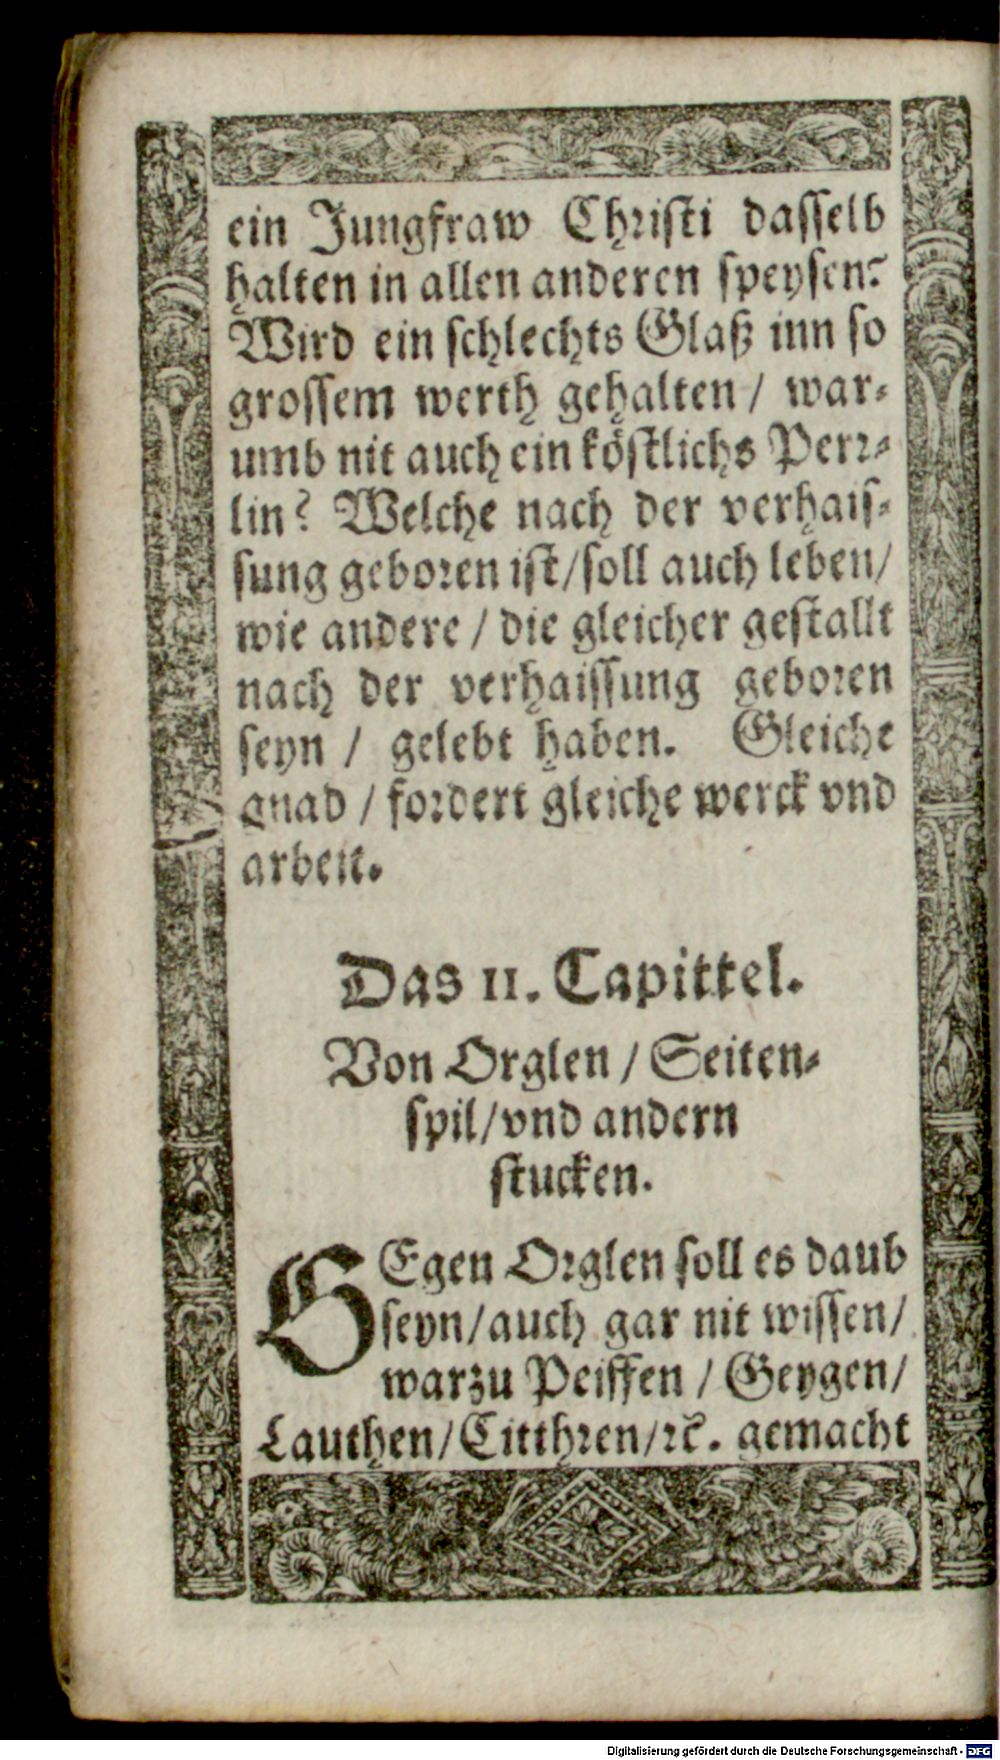 ein Jungfraw Christi dasselb
halten in allen anderen speysen?
Wird ein schlechts Glaß inn so
grossem werth gehalten / war-
umb nit auch ein köstlichs Perr-
lin? Welche nach der verhais-
sung geboren ist/soll auch leben/
wie andere / die gleicher gestallt
nach der verhaissung geboren
seyn / gelebt haben. Gleiche
gnad / fordert gleiche werck vnd
arbeit.
Das 11. Capittel.
Von Orglen / Seiten-
spil/vnd andern
stucken.
GEgen Orglen soll es daub
seyn/auch gar nit wissen/
warzu Peiffen / Geygen/
Lauthen/Citthren/ꝛc. gemacht
Digitalisierung gefördert durch die Deutsche Forschungsgemeinschaft - DFG